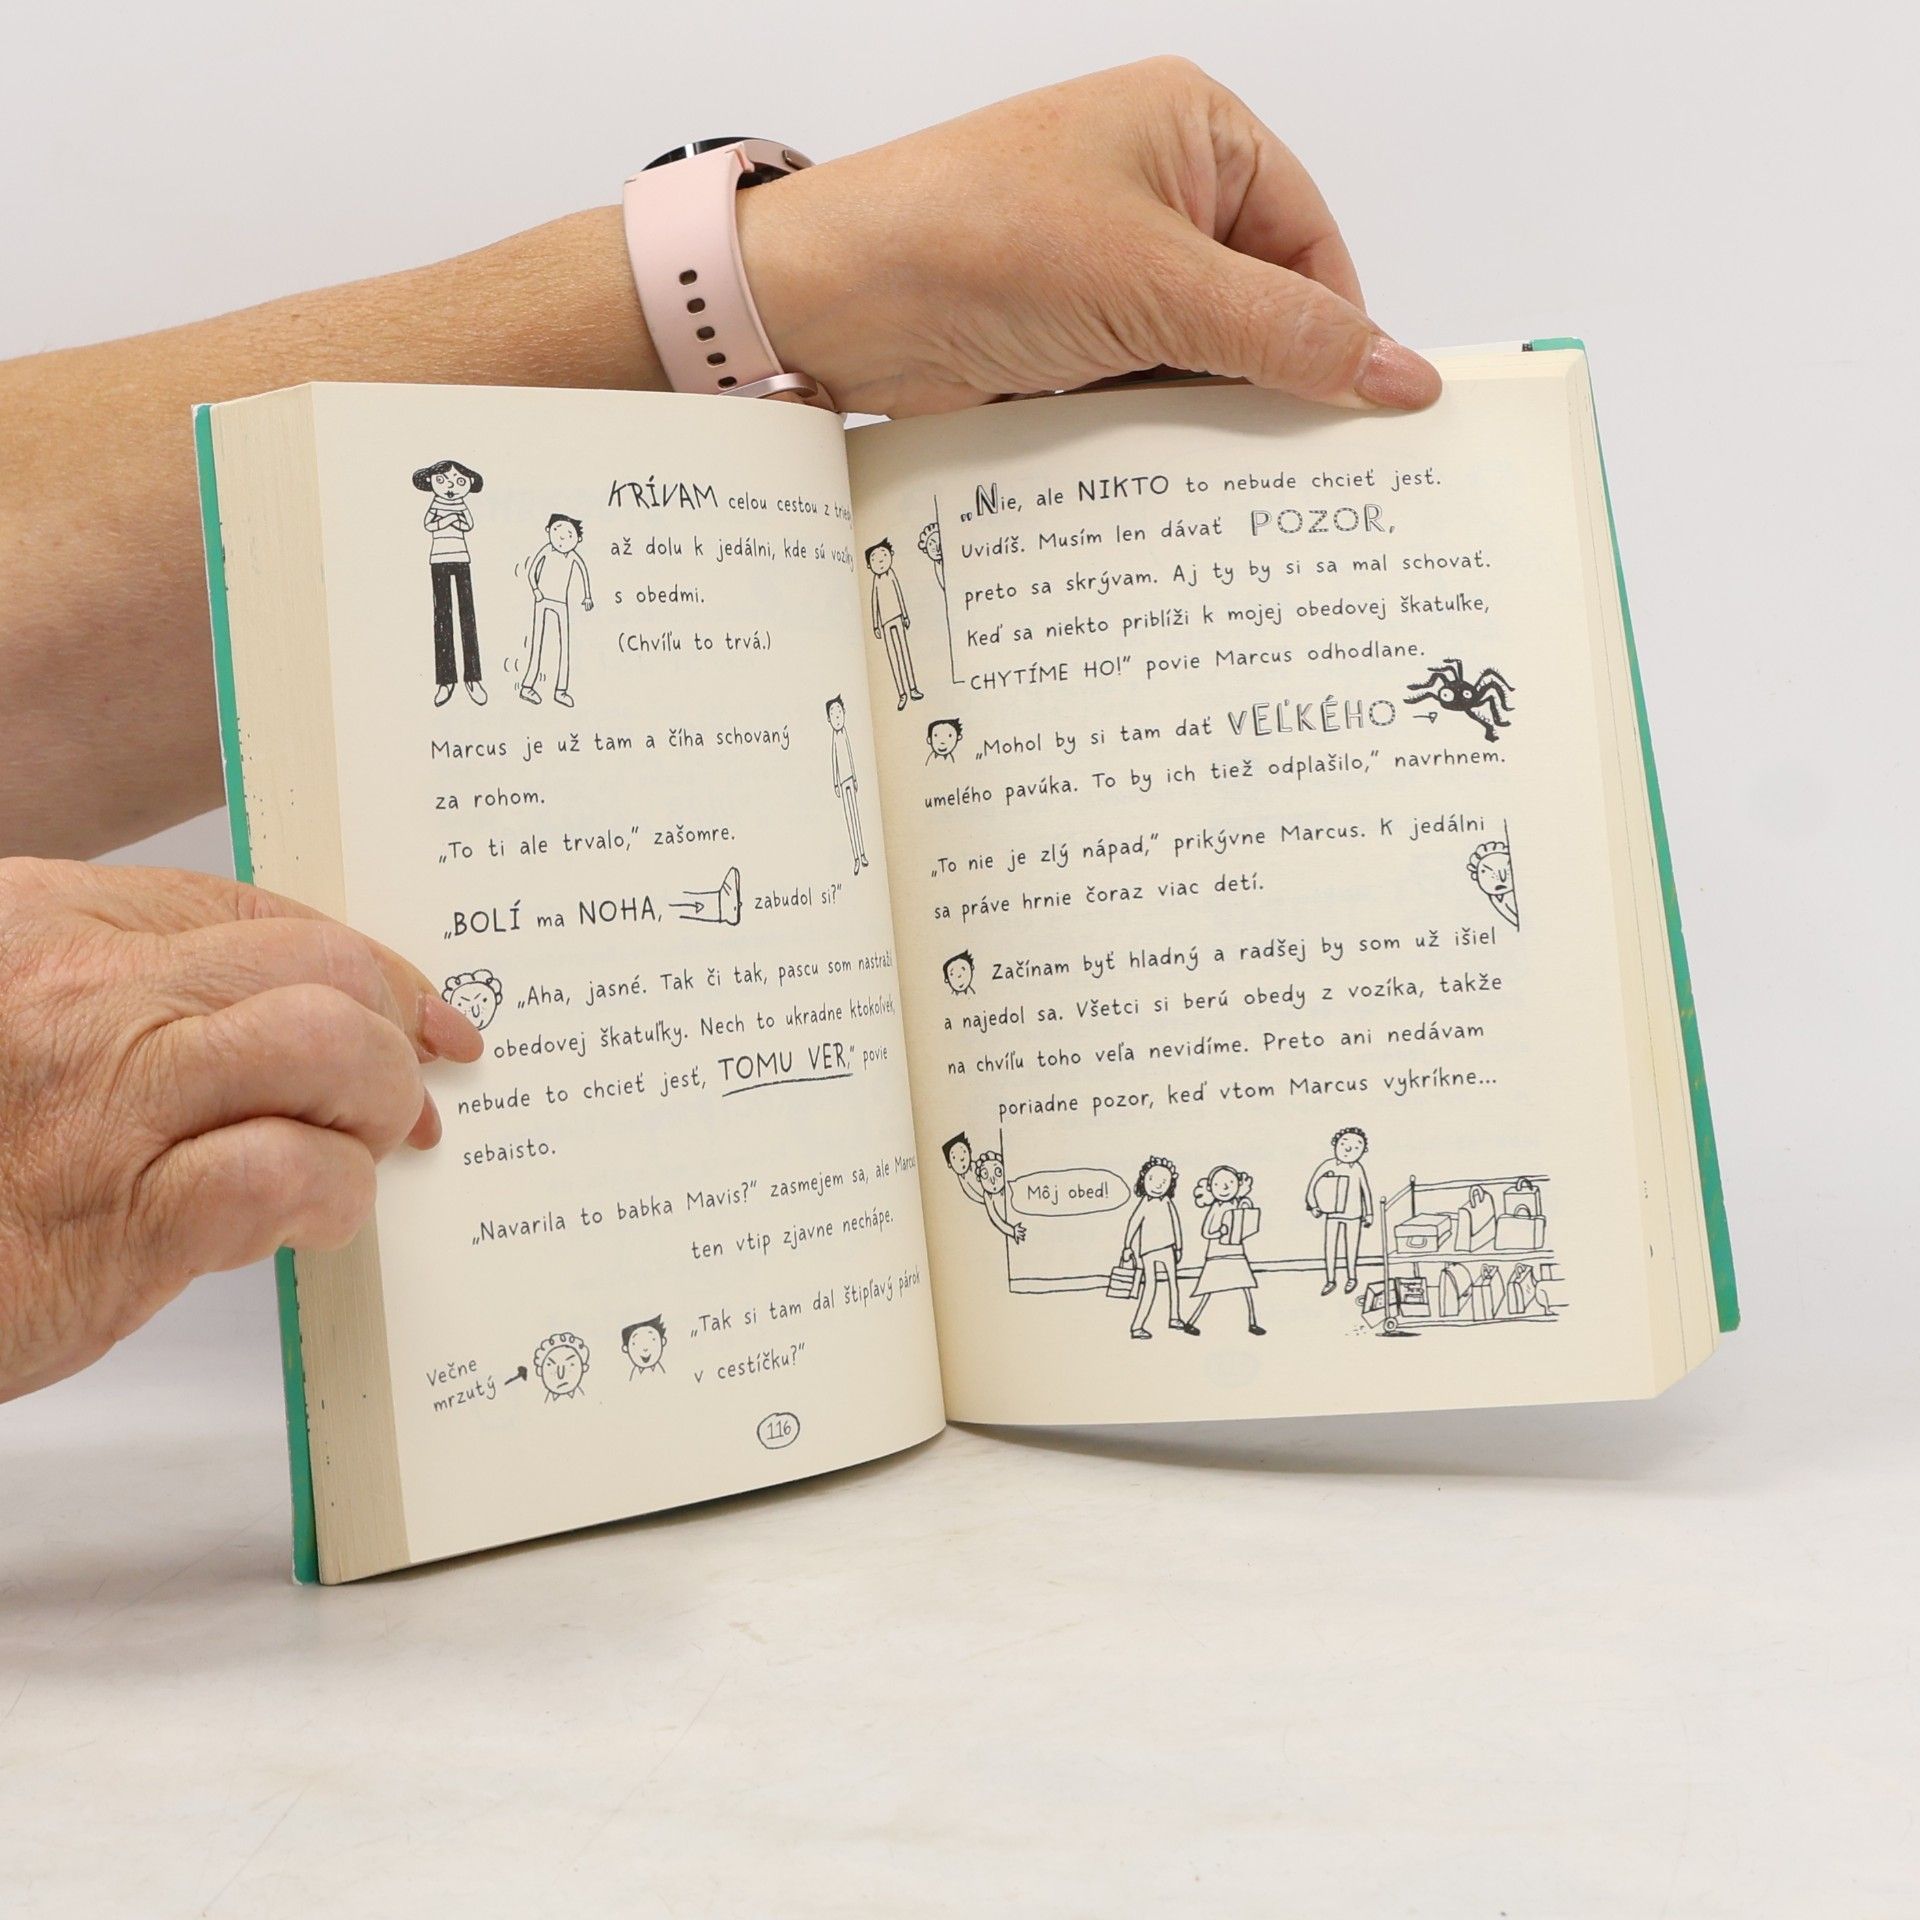 KRÍVAM celou cestou z
až dolu k jedálni, kde sú vozíky
s obedmi.
(Chvíľu to trvá.)
Marcus je už tam a číha schovaný
za rohom.
„To ti ale trvalo,“ zašomre.
„BOLÍ ma NOHA, zabudol si?“
„Aha, jasné. Tak či tak, pascu som
obedovej škatuľky. Nech to ukradne ktokoľvek,
nebude to chcieť jesť, TOMU VER,“ povie
sebaisto.
„Navarila to babka Mavis?“ zasmejem sa, ale Marcus
ten vtip zjavne nechápe.
Večne
mrzutý
„Tak si tam dal štipľavý párok
v cestíčku?“
116
„Nie, ale NIKTO to nebude chcieť jesť.
Uvidíš. Musím len dávať POZOR,
preto sa skrývam. Aj ty by si sa mal schovať.
Keď sa niekto priblíži k mojej obedovej škatuľke,
CHYTÍME HO!“ povie Marcus odhodlane.
„Mohol by si tam dať VEĽKÉHO
umelého pavúka. To by ich tiež odplašilo,“ navrhnem.
„To nie je zlý nápad,“ prikývne Marcus. K jedálni
sa práve hrnie čoraz viac detí.
Začínam byť hladný a radšej by som už išiel
a najedol sa. Všetci si berú obedy z vozíka, takže
na chvíľu toho veľa nevidíme. Preto ani nedávam
poriadne pozor, keď vtom Marcus vykríkne...
Môj obed!